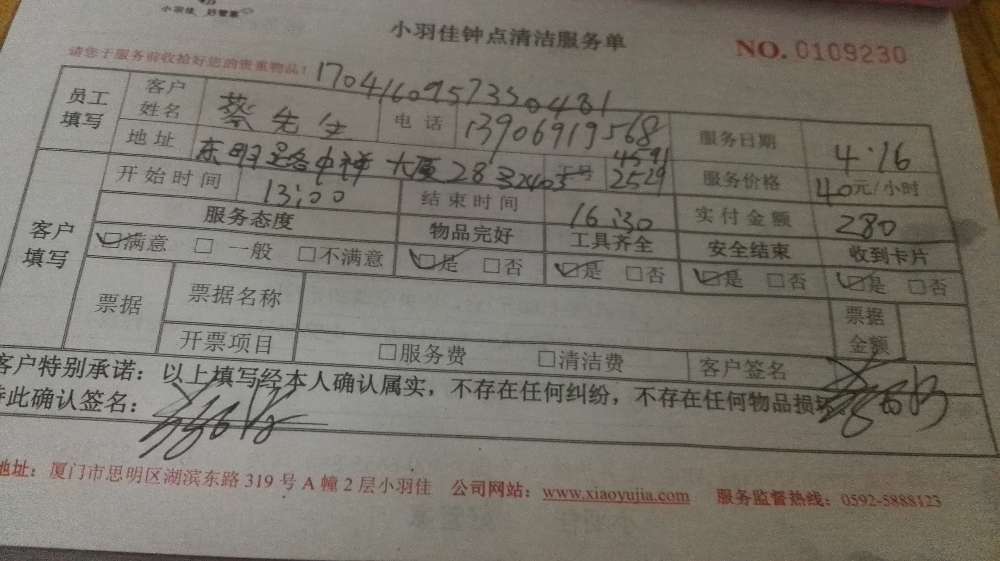 小羽佳 好管家
小羽佳钟点清洁服务单
NO. 0109230
请您于服务前收拾好您的贵重物品！
17041609573350481
员工填写 客户姓名 蔡先生 电话 13906919568 服务日期 4.16
地址 大厦28 2403 工号 4591 2529 服务价格 40元/小时
客户填写 开始时间 13:00 结束时间 16:30 实付金额 280
服务态度 物品完好 工具齐全 安全结束 收到卡片
☑满意 □一般 □不满意 ☑是 □否 ☑是 □否 ☑是 □否 ☑是 □否
票据 票据名称 票据金额
开票项目 □服务费 □清洁费 客户签名
客户特别承诺：以上填写经本人确认属实，不存在任何纠纷，不存在任何物品损坏
特此确认签名：
地址：厦门市思明区湖滨东路 319 号 A 幢 2 层小羽佳 公司网站：www.xiaoyujia.com 服务监督热线：0592-5888123